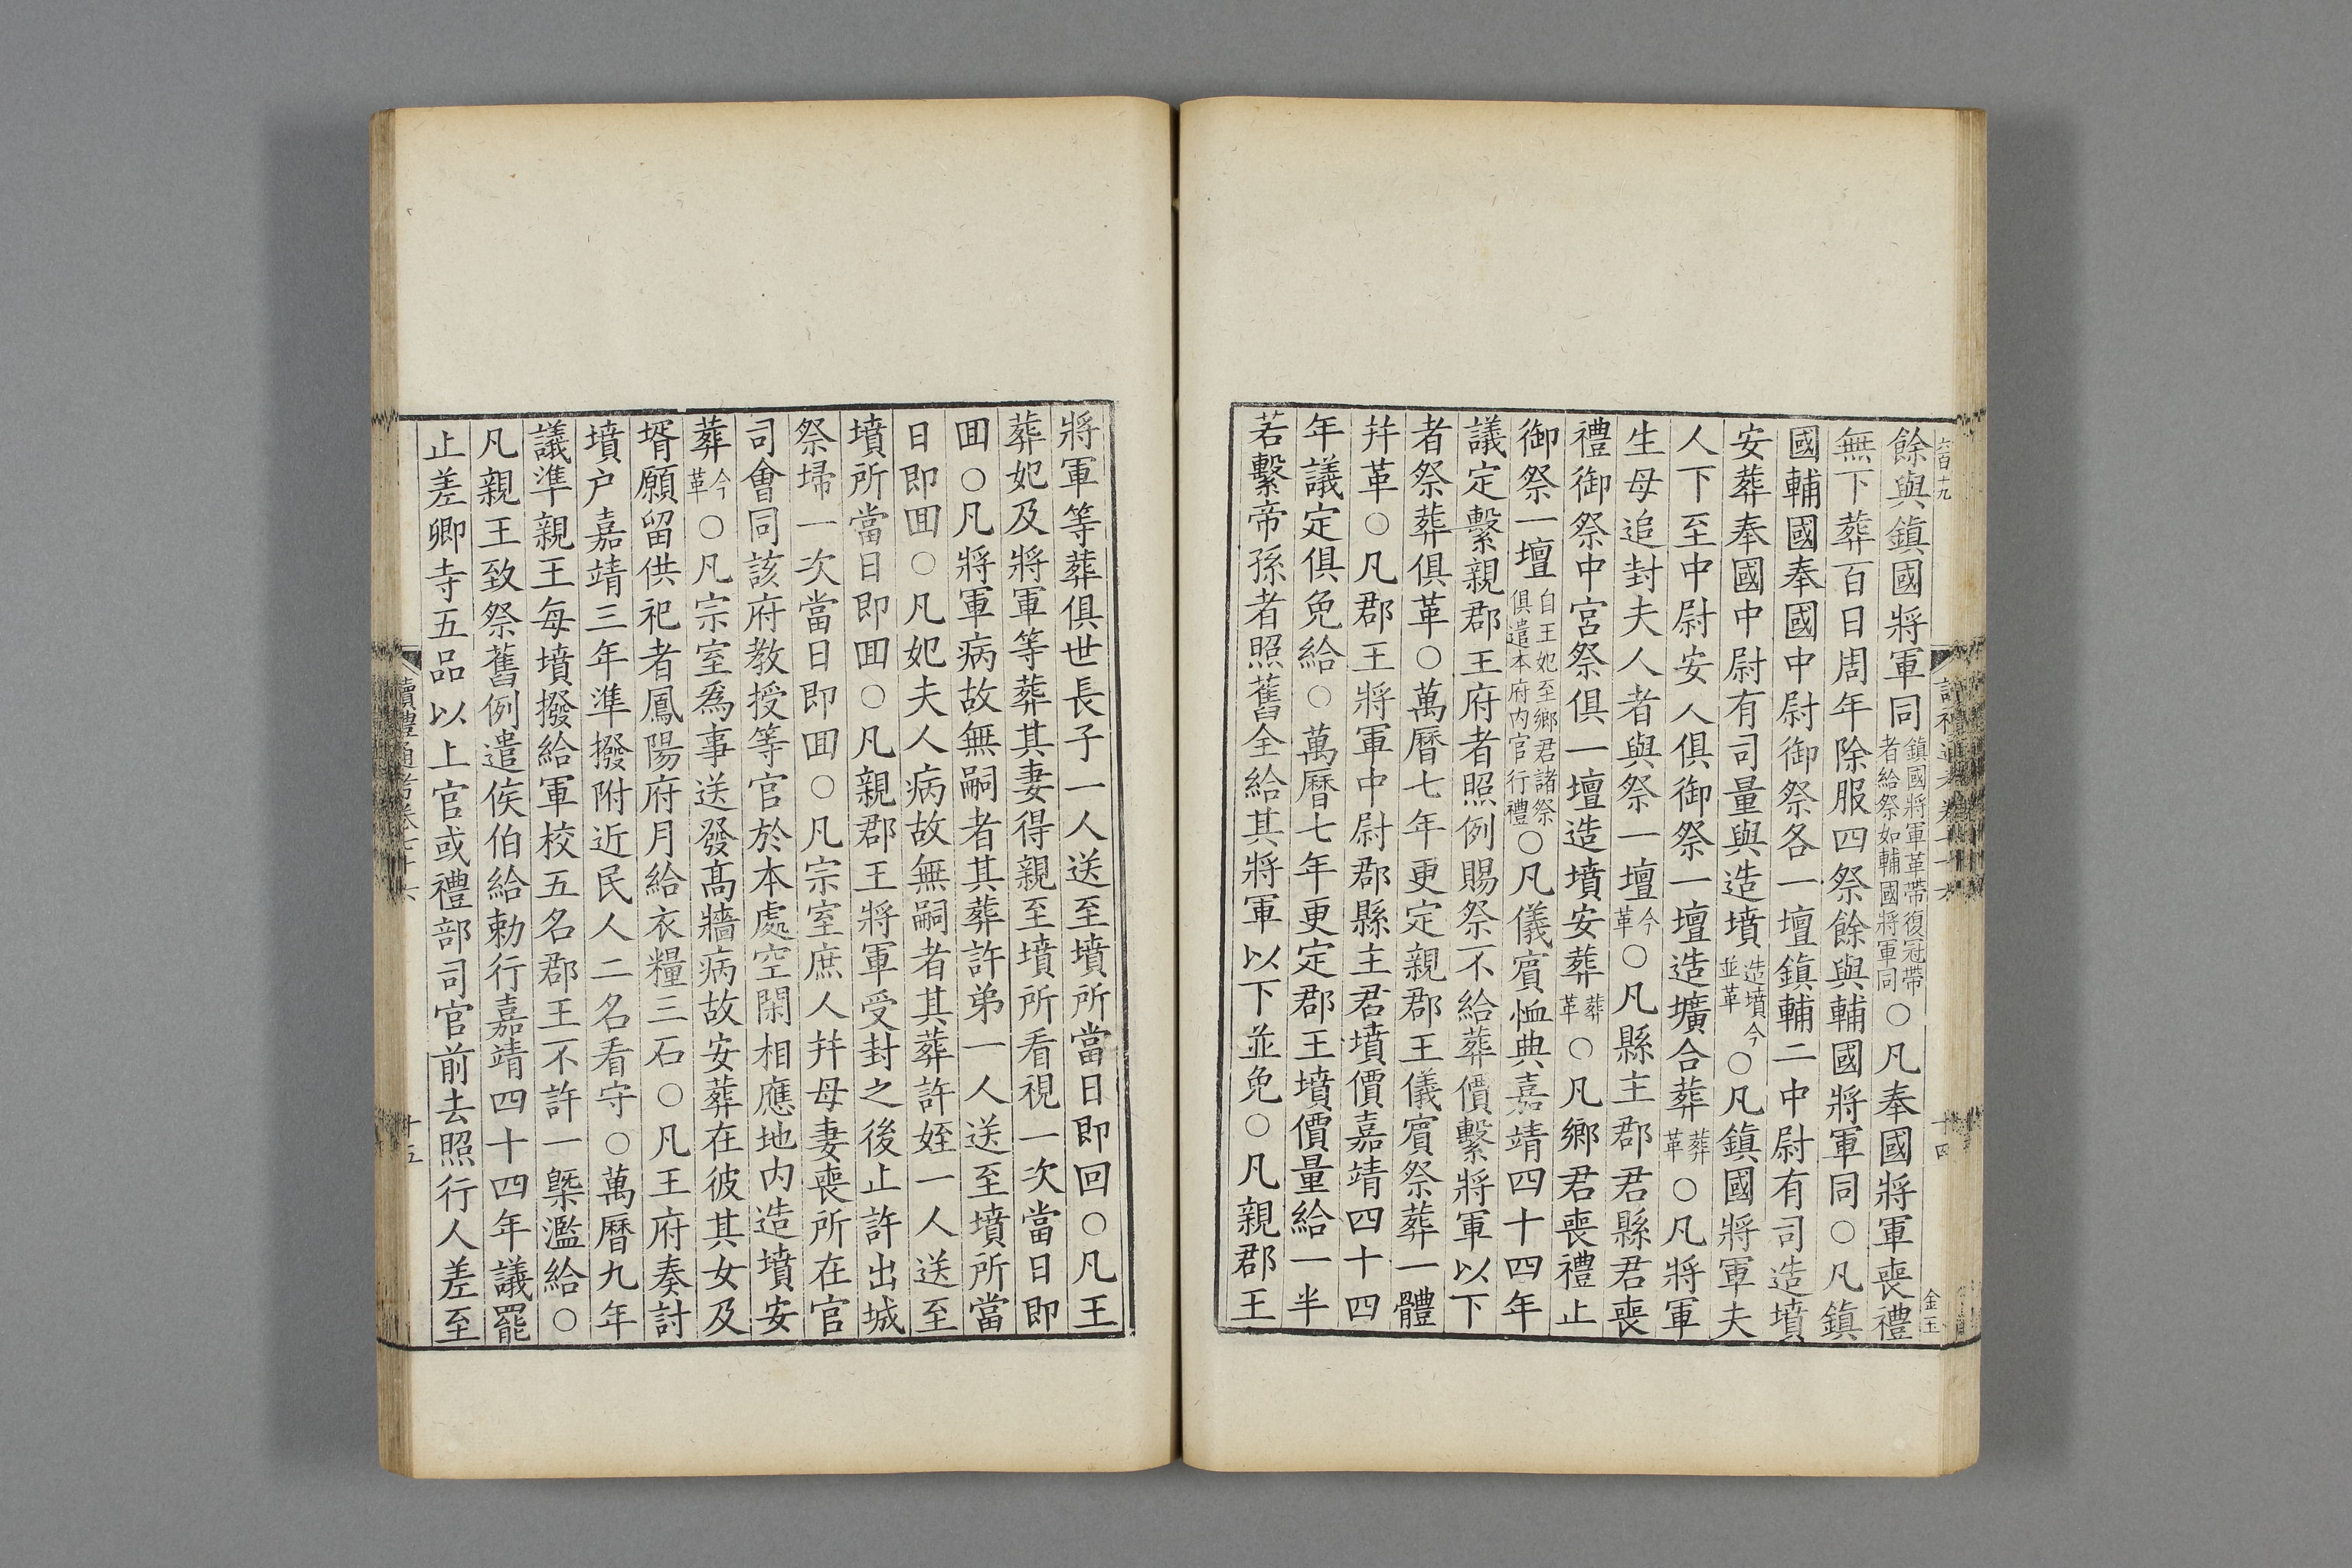 六百十九
餘與鎮國將軍同鎮國將軍革帶復冠帶者給祭如輔國將軍同○凡奉國將軍喪禮
無下葬百日周年除服四祭餘與輔國將軍同○凡鎮
國輔國奉國中尉御祭各一壇鎮輔二中尉有司造墳
安葬奉國中尉有司量與造墳造墳今並革○凡鎮國將軍夫
人下至中尉安人俱御祭一壇造壙合葬葬革○凡將軍
生母追封夫人者與祭一壇今革○凡縣主郡君縣君喪
禮御祭中宮祭俱一壇造墳安葬葬革○凡鄉君喪禮止
御祭一壇自王妃至鄉君諸祭俱遣本府内官行禮○凡儀賓恤典嘉靖四十四年
議定繫親郡王府者照例賜祭不給葬價繫將軍以下
者祭葬俱革○萬曆七年更定親郡王儀賓祭葬一體
幷革○凡郡王將軍中尉郡縣主君墳價嘉靖四十四
年議定俱免給○萬曆七年更定郡王墳價量給一半
若繫帝孫者照舊全給其將軍以下並免○凡親郡王
十四
金玉
將軍等葬俱世長子一人送至墳所當日即回○凡王
葬妃及將軍等葬其妻得親至墳所看視一次當日即
囬○凡將軍病故無嗣者其葬許弟一人送至墳所當
日即囬○凡妃夫人病故無嗣者其葬許姪一人送至
墳所當日即囬○凡親郡王將軍受封之後止許出城
祭埽一次當日即囬○凡宗室庶人幷母妻喪所在官
司會同該府教授等官於本處空閑相應地内造墳安
葬今革○凡宗室爲事送發高牆病故安葬在彼其女及
壻願留供祀者鳳陽府月給衣糧三石○凡王府奏討
墳户嘉靖三年準撥附近民人二名看守○萬曆九年
議準親王每墳撥給軍校五名郡王不許一槩濫給○
凡親王致祭舊例遣侯伯給勅行嘉靖四十四年議罷
止差卿寺五品以上官或禮部司官前去照行人差至
讀禮通考卷七十六
十五